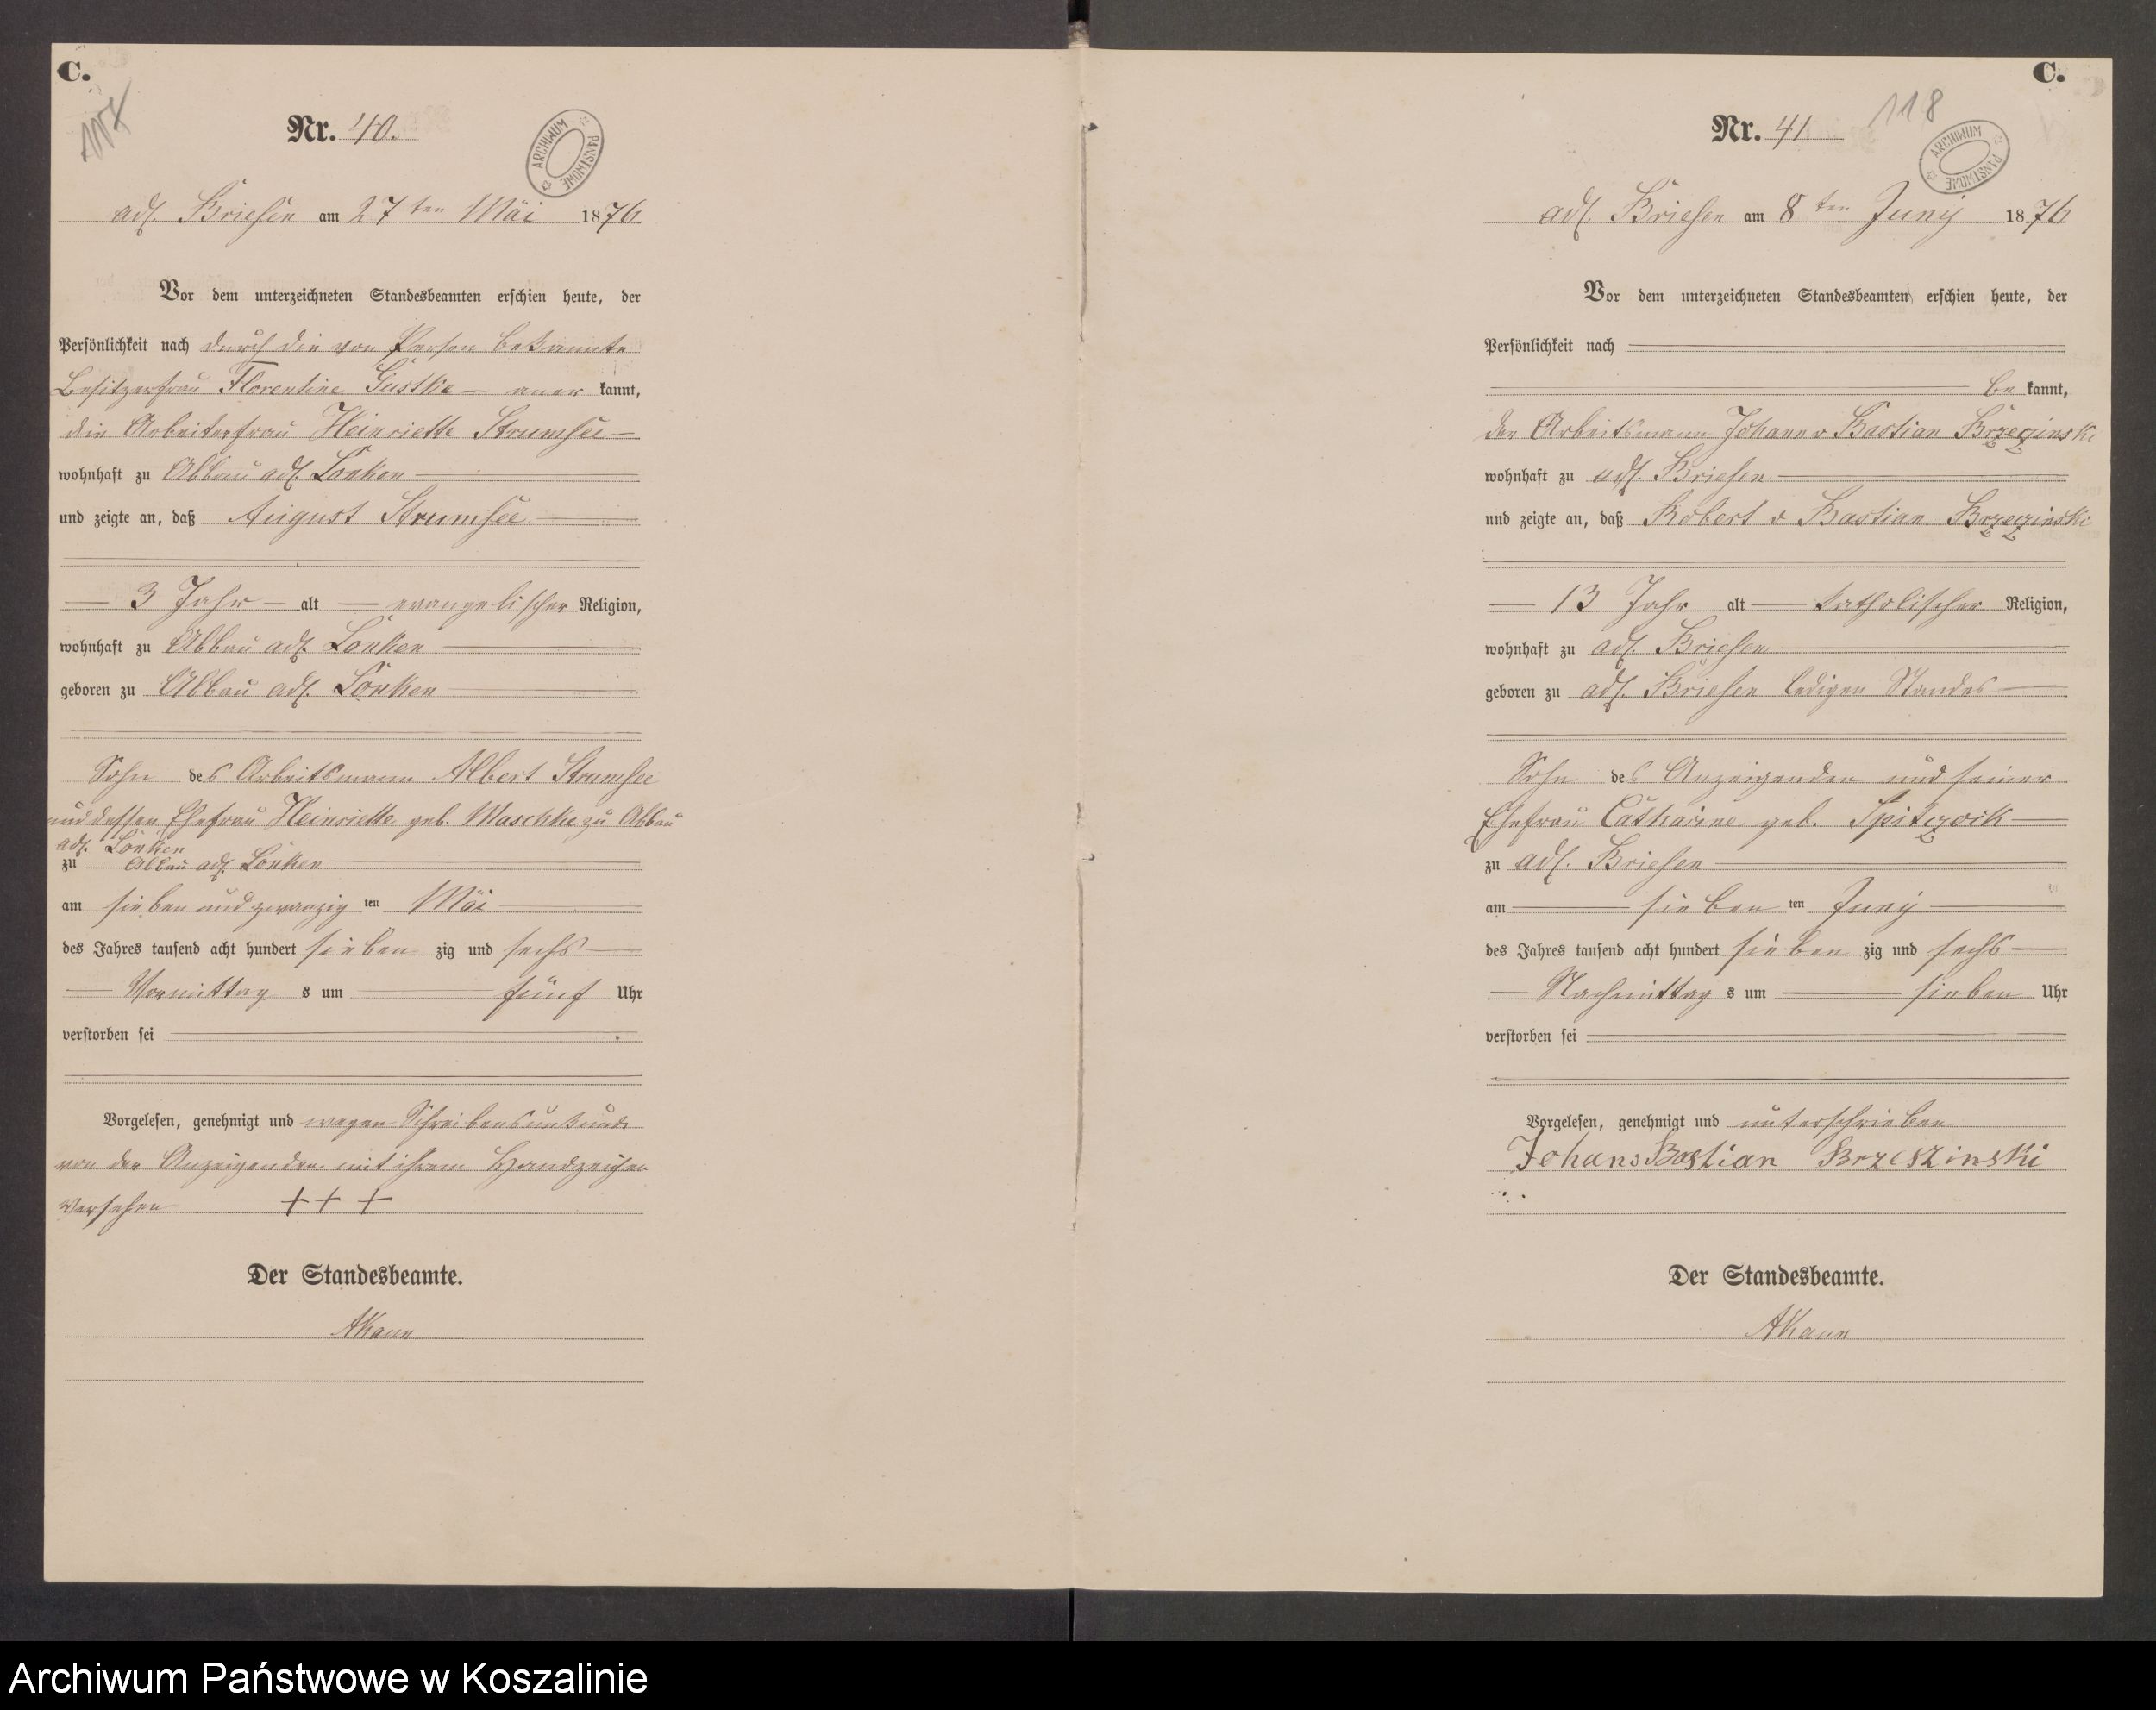 C.
Nr. 40.
ARCHIWUM PAŃSTWOWE
adl. Briesen am 27ten Mai 1876
Vor dem unterzeichneten Standesbeamten erschien heute, der
Persönlichkeit nach durch die von Person bekannte
Besitzerfrau Florentine Gustke — aner kannt,
die Arbeiterfrau Heinriette Strumsee —
wohnhaft zu Abbau adl. Lonken —
und zeigte an, daß August Strumsee —
— 3 Jahr — alt — evangelischer Religion,
wohnhaft zu Abbau adl. Lonken —
geboren zu Abbau adl. Lonken —
Sohn des Arbeitsmann Albert Strumsee
und dessen Ehefrau Heinriette geb. Maschke zu Abbau
adl. Lonken
zu Abbau adl. Lonken —
am sieben und zwanzig ten Mai —
des Jahres tausend acht hundert sieben zig und sechs —
— Vormittag s um — fünf Uhr
verstorben sei
Vorgelesen, genehmigt und wegen Schreibensunkunde
von der Anzeigenden mit ihrem Handzeichen
versehen + + +
Der Standesbeamte.
C.
118
Nr. 41
ARCHIWUM PAŃSTWOWE
adl. Briesen am 8ten Juny 1876
Vor dem unterzeichneten Standesbeamten erschien heute, der
Persönlichkeit nach
— be kannt,
der Arbeitsmann Johann v Bastian Brzezinski
wohnhaft zu adl. Briesen —
und zeigte an, daß Robert v Bastian Brzezinski
— 13 Jahr alt — katholischer Religion,
wohnhaft zu adl. Briesen —
geboren zu adl. Briesen ledigen Standes —
Sohn des Anzeigenden und seiner
Ehefrau Catharine geb. Spitczock —
zu adl. Briesen —
am — sieben ten Juny —
des Jahres tausend acht hundert sieben zig und sechs —
— Nachmittag s um — sieben Uhr
verstorben sei
Vorgelesen, genehmigt und unterschrieben
Johans Bastian Brzeszinski
Der Standesbeamte.
Archiwum Państwowe w Koszalinie